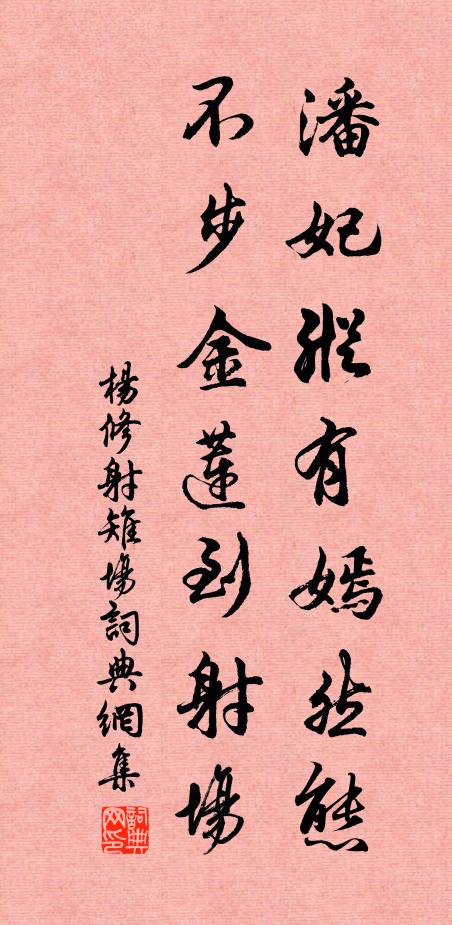 潘妃縱有嫣然態
不步金蓮到射場
楊修射雉場詞典網集
詞典網印